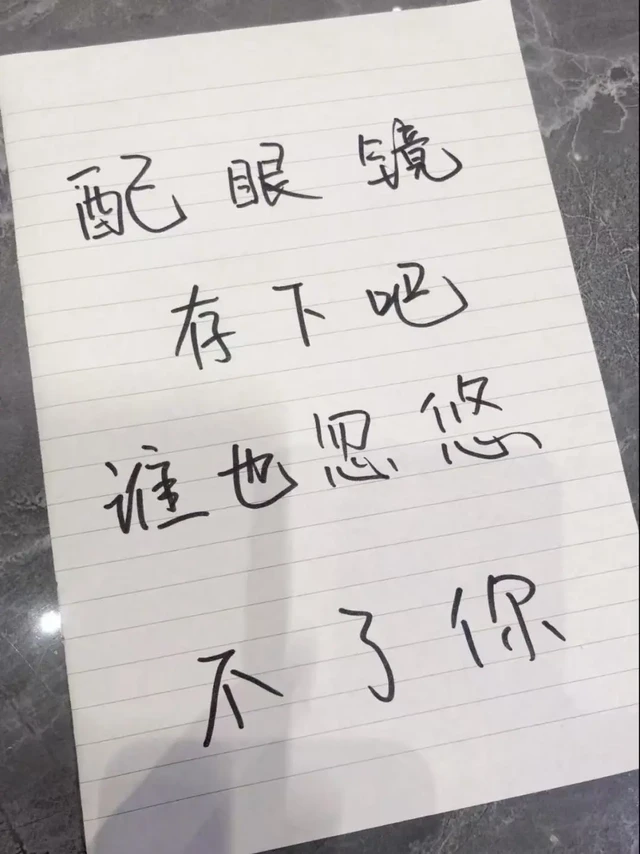 配眼镜
存下吧
谁也忽悠
不了你